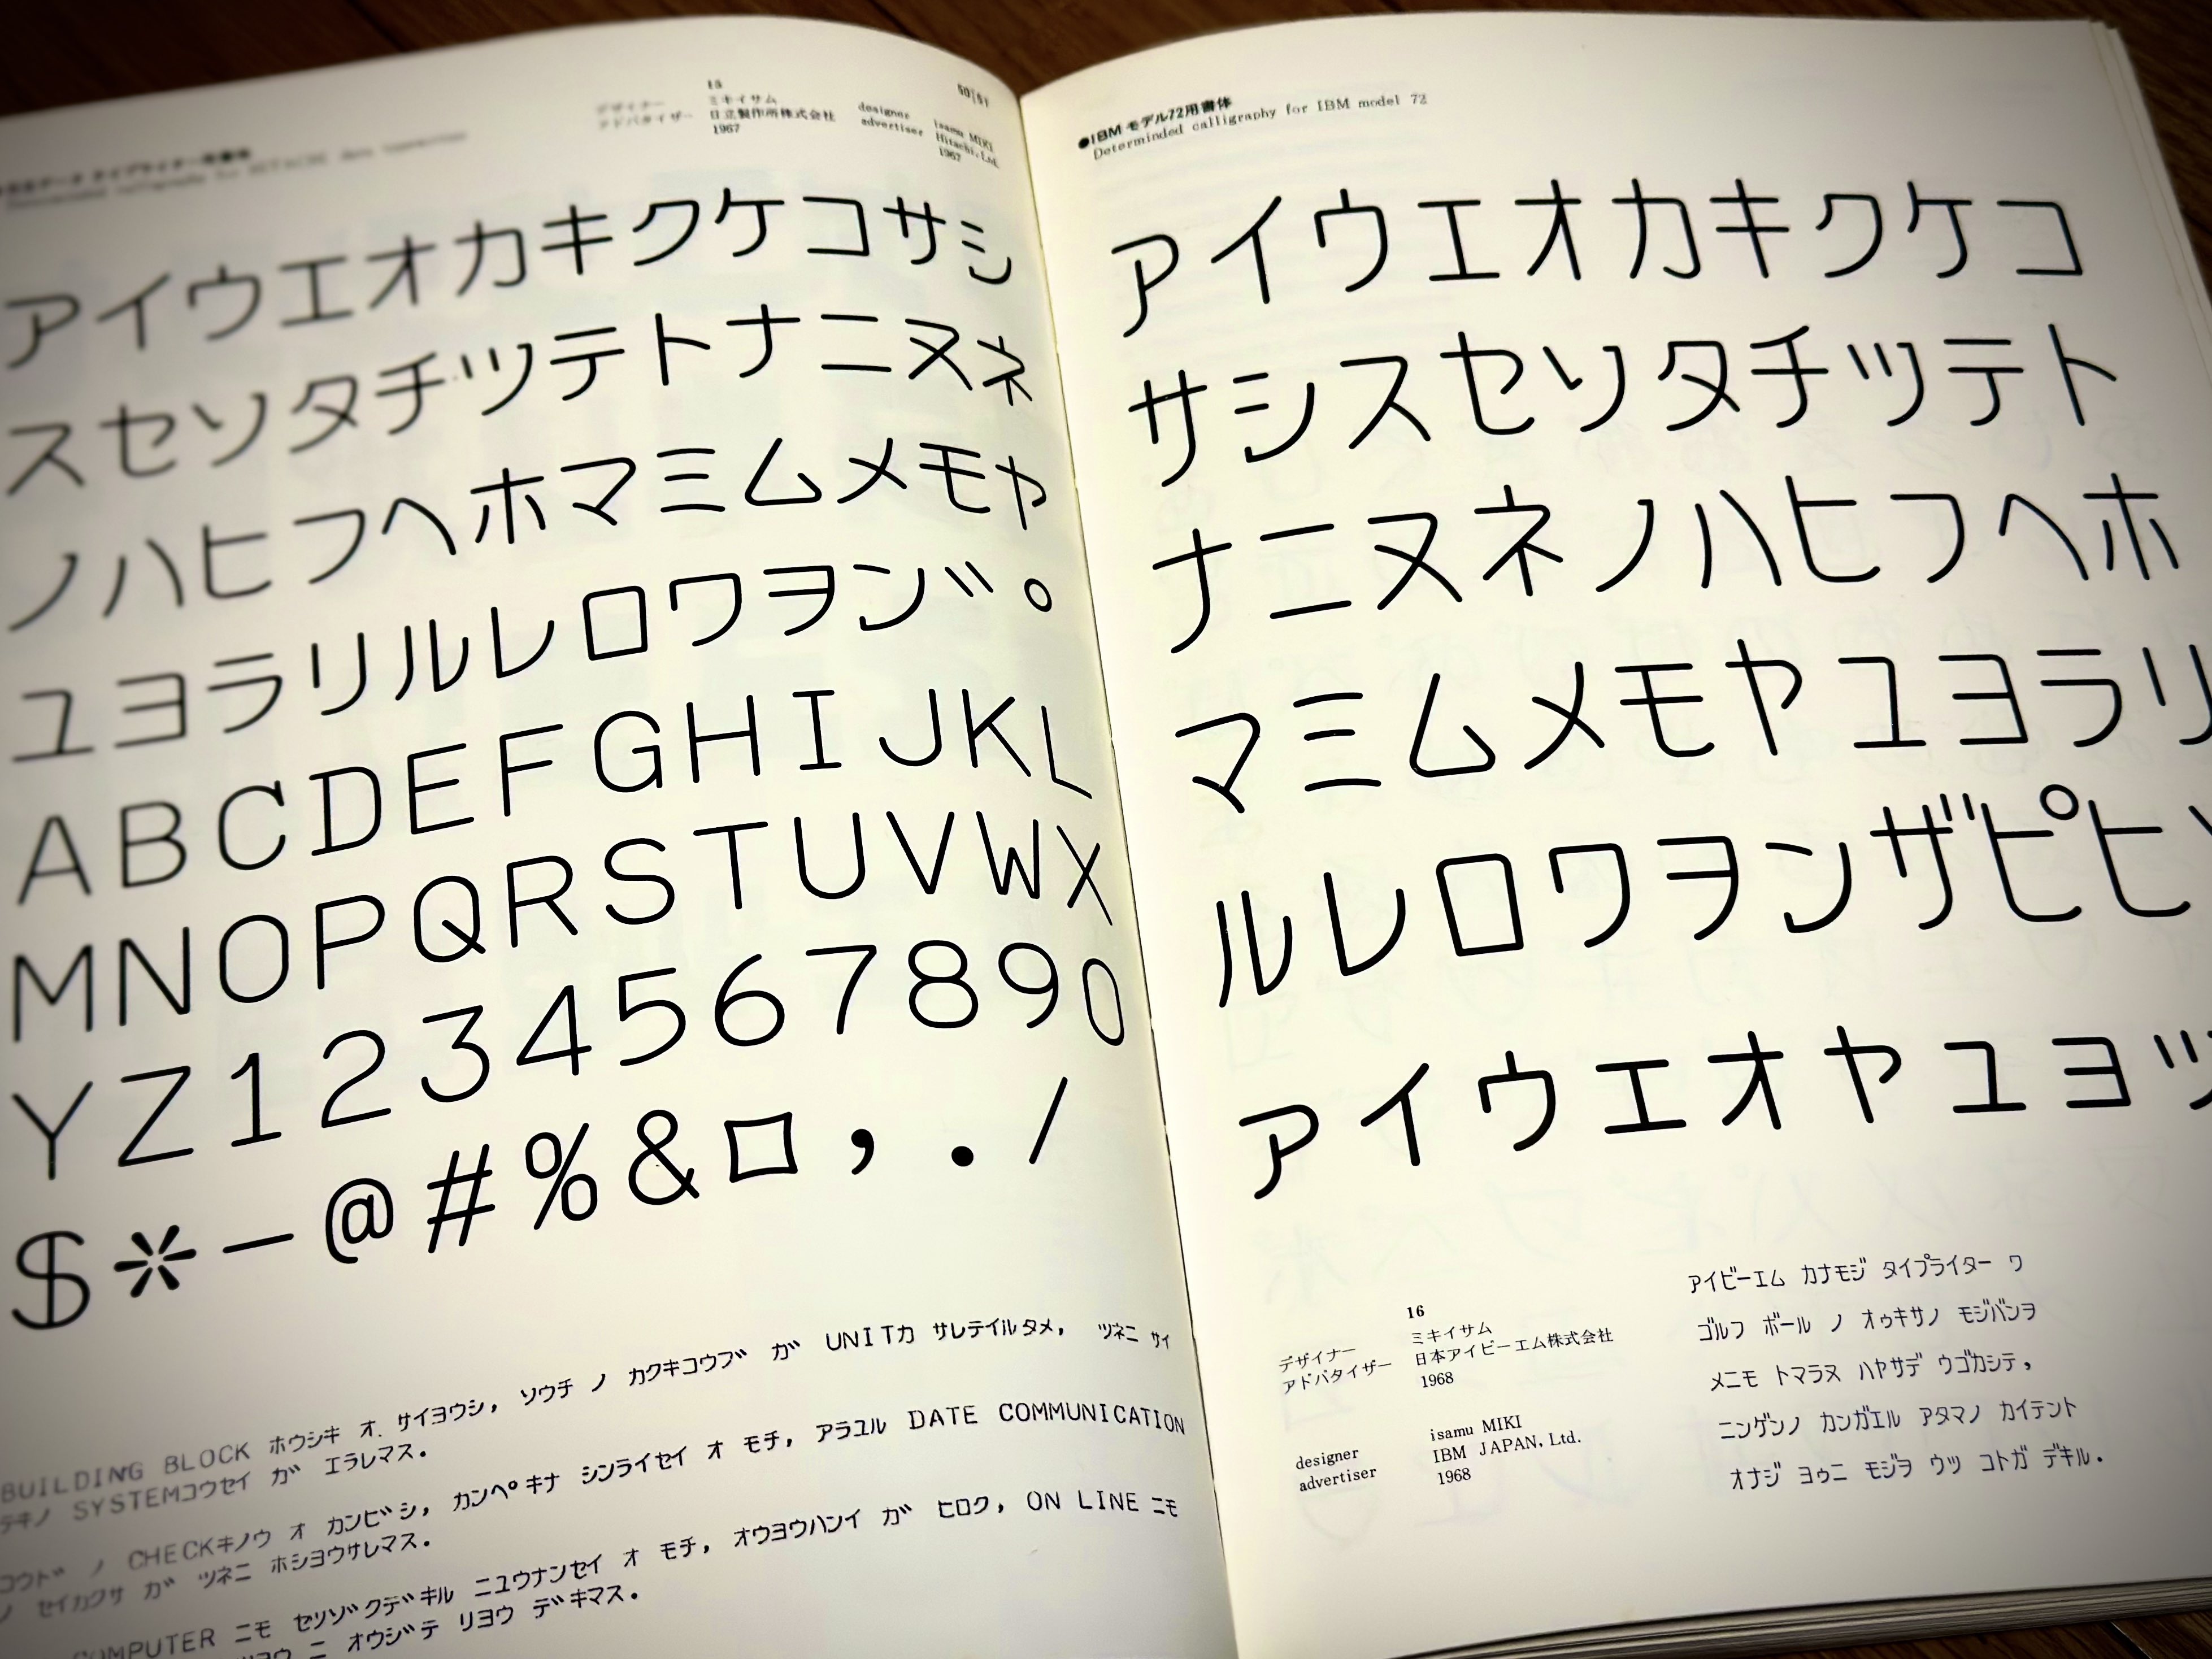 15
デザイナー ミキイサム
アドバタイザー 日立製作所株式会社
1967
designer isamu MIKI
advertiser Hitachi, Ltd.
1967
50|51
アイウエオカキクケコサシ
スセソタチツテトナニヌネ
ノハヒフヘホマミムメモヤ
ユヨラリルレロワヲン゛゜
ABCDEFGHIJKL
MNOPQRSTUVWX
YZ1234567890
$*-@#%&¤,./
BUILDING BLOCK ホウシキ オ サイヨウシ, ソウチ ノ カクキコウブ ガ UNITカ サレテイルタメ, ツネニ サイ
テキノ SYSTEMコウセイ ガ エラレマス.
コウド ノ CHECKキノウ オ カンビシ, カンペキナ シンライセイ オ モチ, アラユル DATE COMMUNICATION
ノ セイカクサ ガ ツネニ ホシヨウサレマス.
COMPUTER ニモ セツゾクデキル ニユウナンセイ オ モチ, オウヨウハンイ ガ ヒロク, ON LINE ニモ
ニ オウジテ リヨウ デキマス.
●IBM モデル72用書体
Determinded calligraphy for IBM model 72
アイウエオカキクケコ
サシスセソタチツテト
ナニヌネノハヒフヘホ
マミムメモヤユヨラリ
ルレロワヲンザピヒ
アイウエオヤユヨツ
16
デザイナー ミキイサム
アドバタイザー 日本アイビーエム株式会社
1968
designer isamu MIKI
advertiser IBM JAPAN, Ltd.
1968
アイビーエム カナモジ タイプライター ワ
ゴルフ ボール ノ オゥキサノ モジバンヲ
メニモ トマラヌ ハヤサデ ウゴカシテ,
ニンゲンノ カンガエル アタマノ カイテント
オナジ ヨゥニ モジヲ ウツ コトガ デキル.